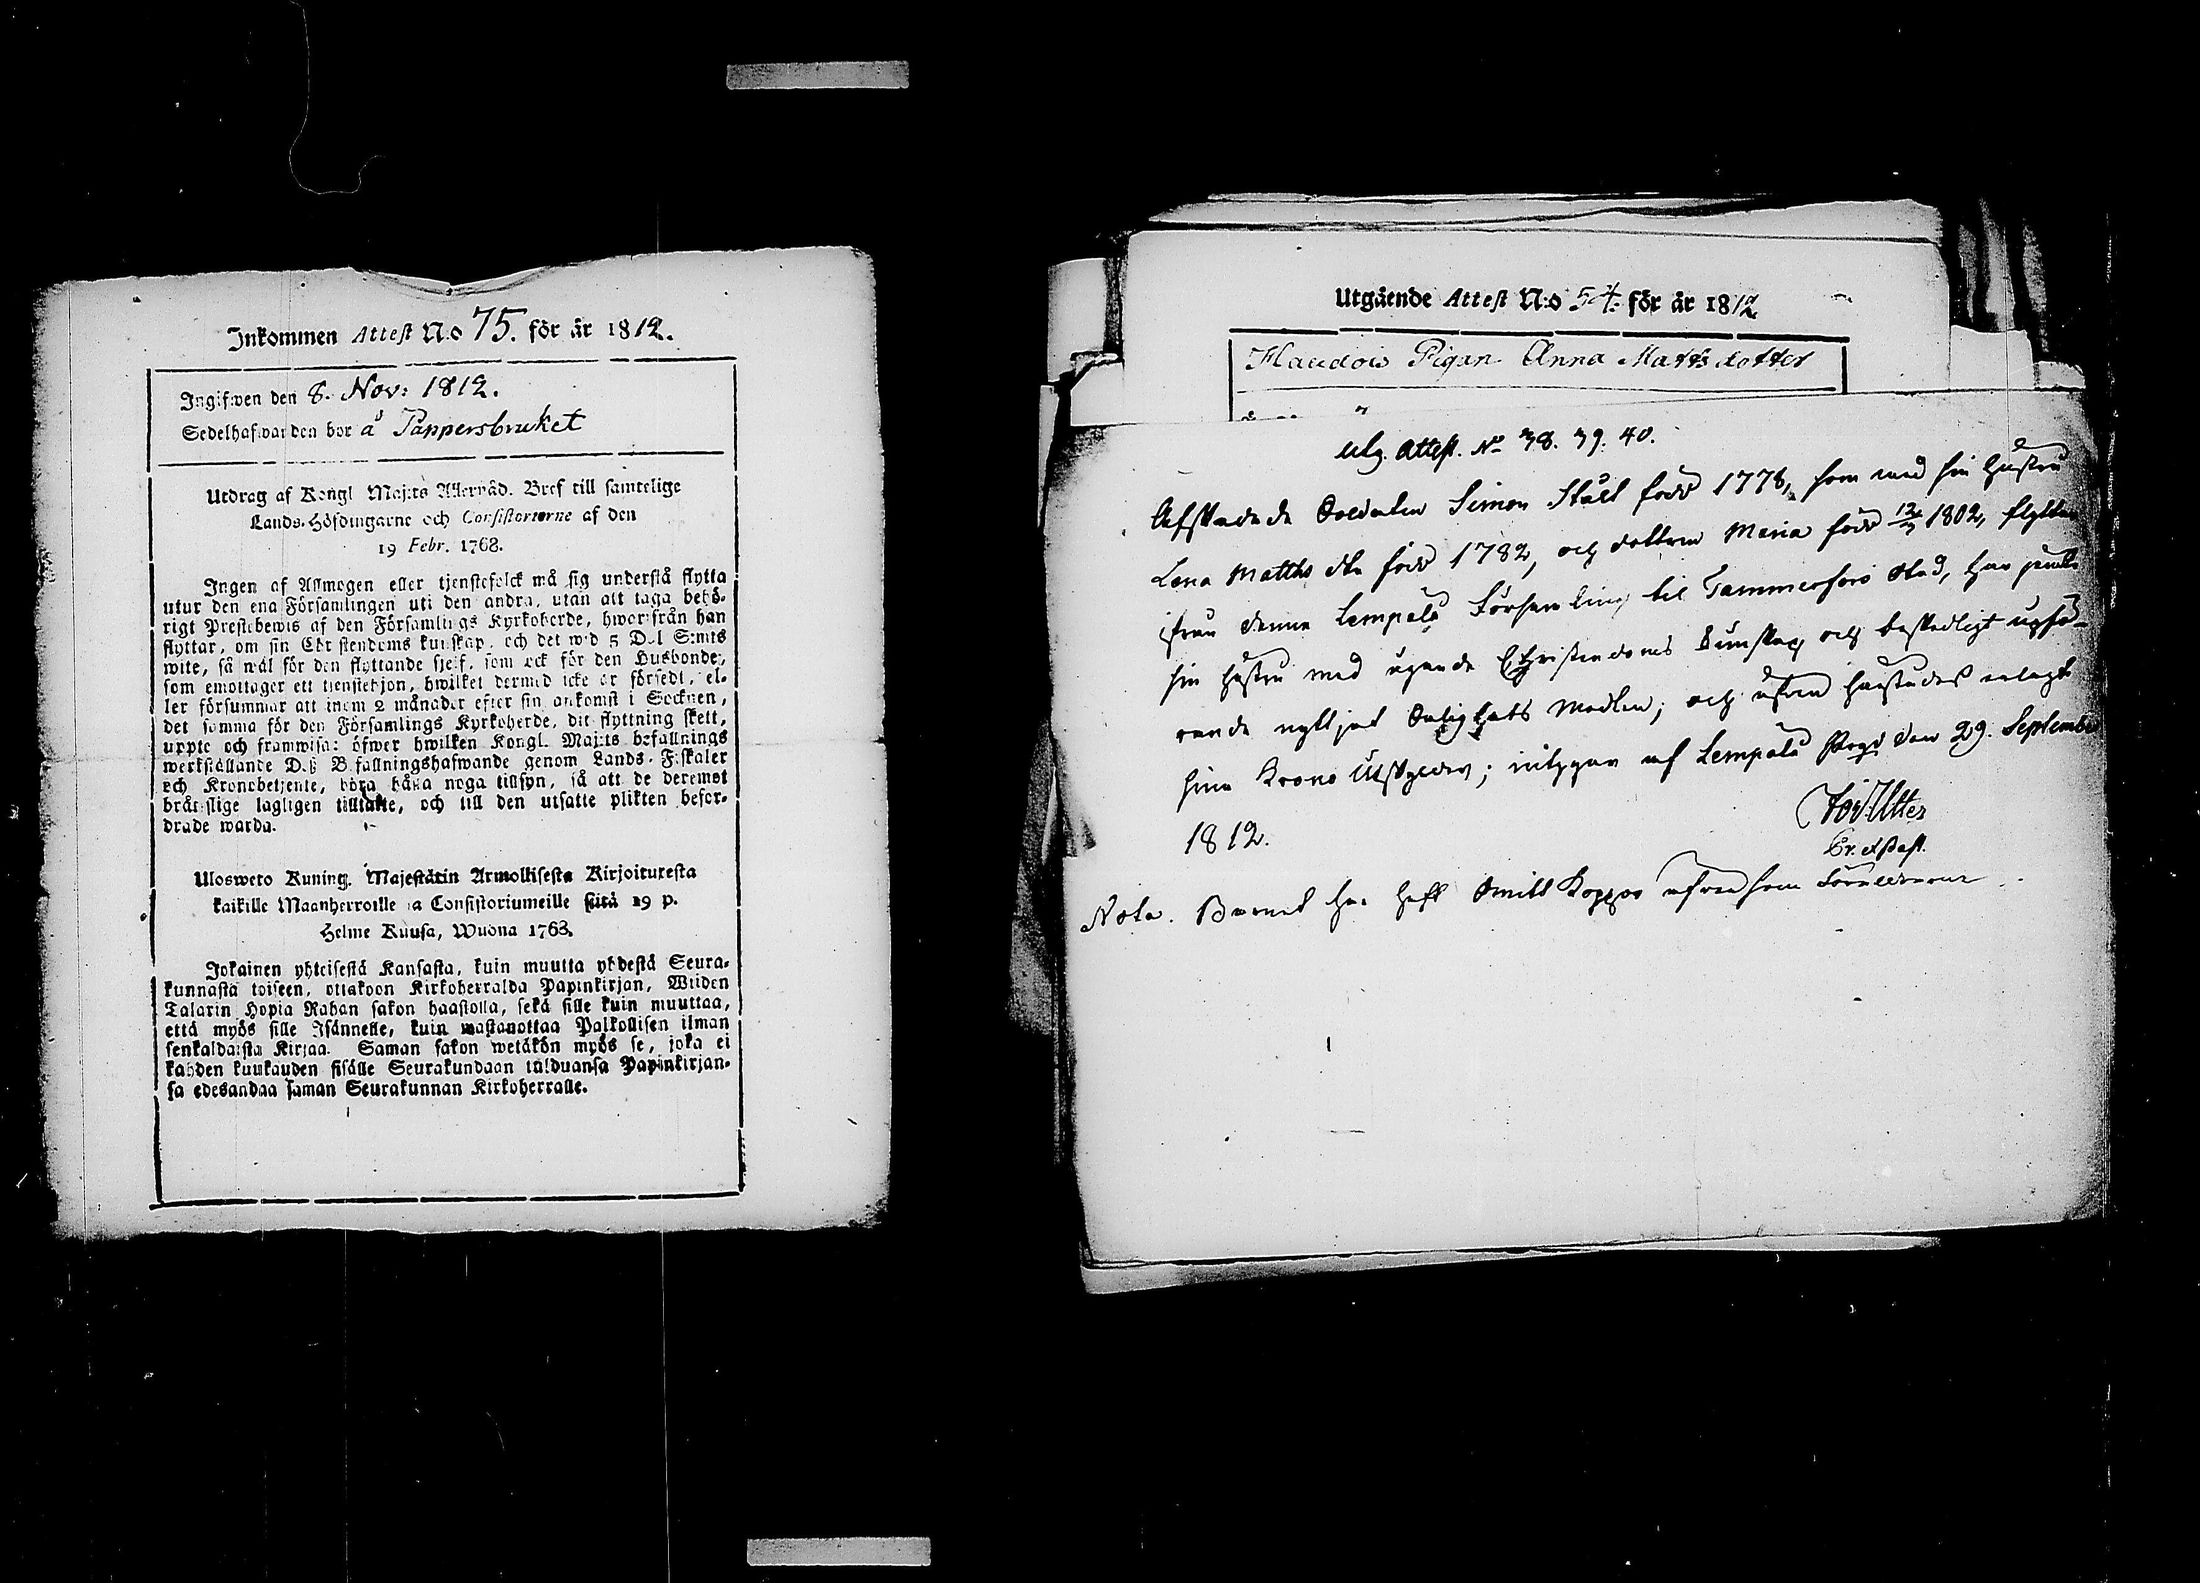 Inkommen Attest N:o 75. för år 1812.
Ingifwen den 8. Nov: 1812.
Sedelhafwanden bor å Pappersbruket
Utdrag af Kongl Maj:ts Allernåd. Bref till samtelige
Lands-Höfdingarne och Consistorierne af den
19 Febr. 1768.
Ingen af Allmogen eller tjenstefolck må sig understå flytta
utur den ena Församlingen uti den andra, utan att taga behö-
rigt Prestebewis af den Församlings Kyrkoherde, hworifrån han
flyttar, om sin Christendoms kunskap, och det wid 5 Dal. S:mts
wite, så wäl för den flyttande sjelf, som ock för den Husbonde,
som emottager ett tjenstehjon, hwilket dermed icke är försedt, el-
ler försummar att inom 2 månader efter sin ankomst i Socknen,
det samma för den Församlings Kyrkoherde, dit flyttning skett,
uppte och framwisa: öfwer hwilken Kongl. Maj:ts befallnings
werkställande Deß Befallningshafwande genom Lands-Fiskaler
och Kronobetjente, böra hålla noga tillsyn, så att de deremot
bråtslige lagligen tilltalte, och till den utsatte plikten befor-
drade warda.
Ulosweto Kuning. Majestätin Armollisesta Kirjoituxesta
kaikille Maanherroille ja Consistoriumeille siitä 19 p.
Helme Kuusa, Wuona 1768.
Jokainen yhteisestä Kansasta, kuin muutta yhdestä Seura-
kunnasta toiseen, ottakoon Kirkoherralda Papinkirjan, Wiiden
Talarin Hopia Rahan sakon haastolla, sekä sille kuin muuttaa,
että myös sille Isännelle, kuin wastanottaa Palkollisen ilman
senkaldaista Kirjaa. Saman sakon wetäkön myös se, joka ei
kahden kuukauden sisälle Seurakundaan tulduansa Papinkirjan-
sa edesandaa saman Seurakunnan Kirkoherralle.
Utgående Attest N:o 54. för år 1812
Flaudois Pigan Anna Mattsdotter
Utg. Attest. No 38. 39. 40.
Afskedade Soldaten Simon Stålt född 1778, som med sin Hustru
Lena Matths dtr född 1782, och dottren Maria född 1802, flyttar
ifrån denne Lempälä Församling til Tammerfors Stad, har jemte
sin Hustru med ägande Christendoms Kunskap och beskedligt upfö-
rande nyttjat Salighets Medlen; och äfven härstädes erlagt
sina Krono Utskylder; intygar af Lempälä Prgd den 29. September
1812.
Nota. Barnet har haft Smitt Koppor äfven som Föräldrarne